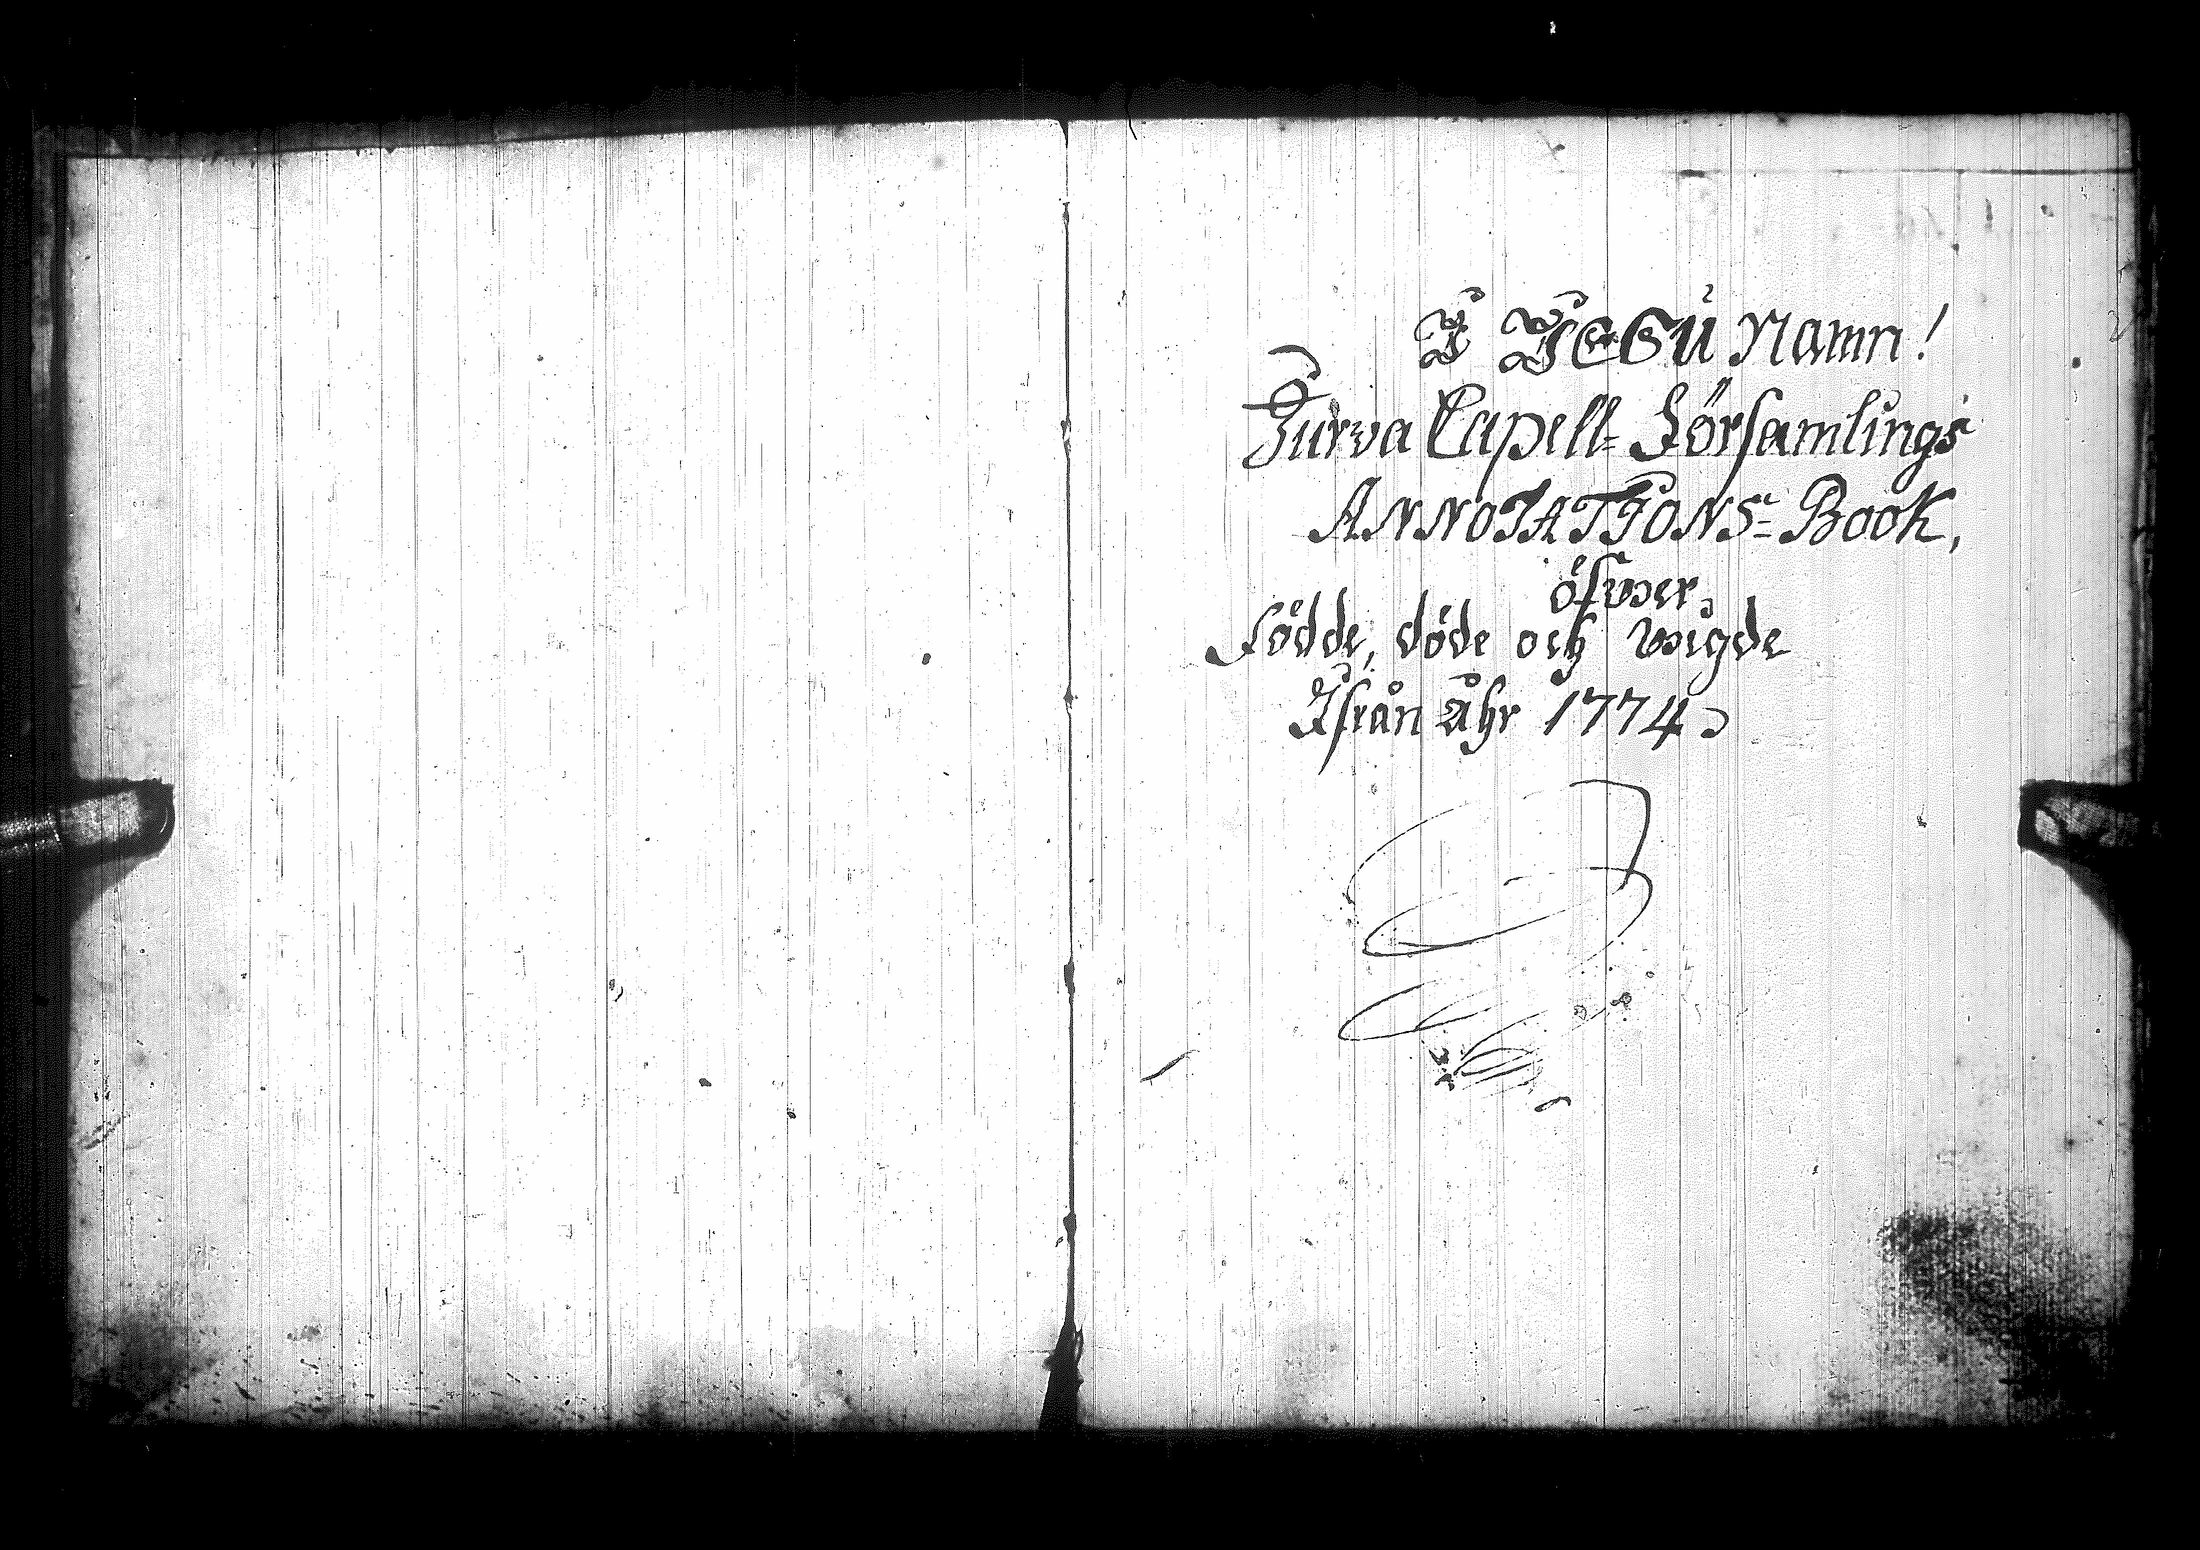 I JESU Namn!
Turva Capell-Församlings
ANNOTATIONS-Book,
öfwer
Födde, döde och wigde
Ifrån Åhr 1774